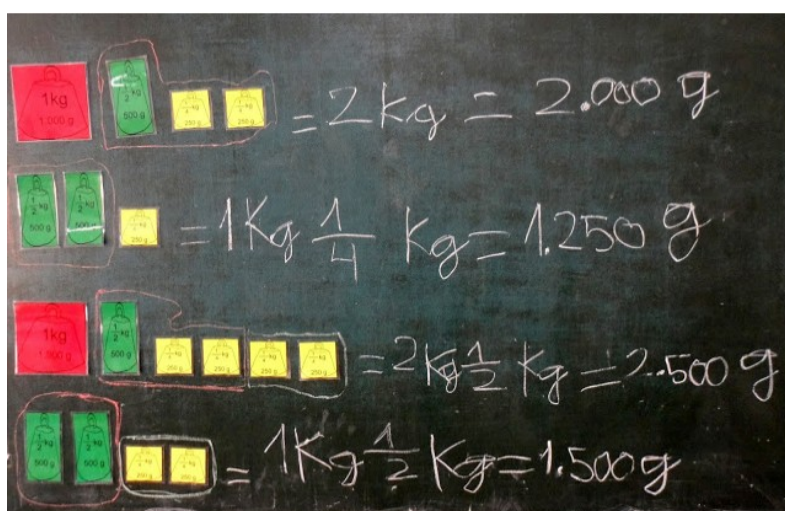 1kg 1.000 g ½ kg 500 g ¼ kg 250 g ¼ kg 250 g = 2 kg = 2.000 g
½ kg 500 g ½ kg 500 g ¼ kg 250 g = 1 Kg 1/4 Kg = 1.250 g
1kg 1.000 g ½ kg 500 g ¼ kg 250 g ¼ kg 250 g ¼ kg 250 g ¼ kg 250 g = 2 Kg 1/2 Kg = 2.500 g
½ kg 500 g ½ kg 500 g ¼ kg 250 g ¼ kg 250 g = 1 Kg 1/2 Kg = 1.500 g